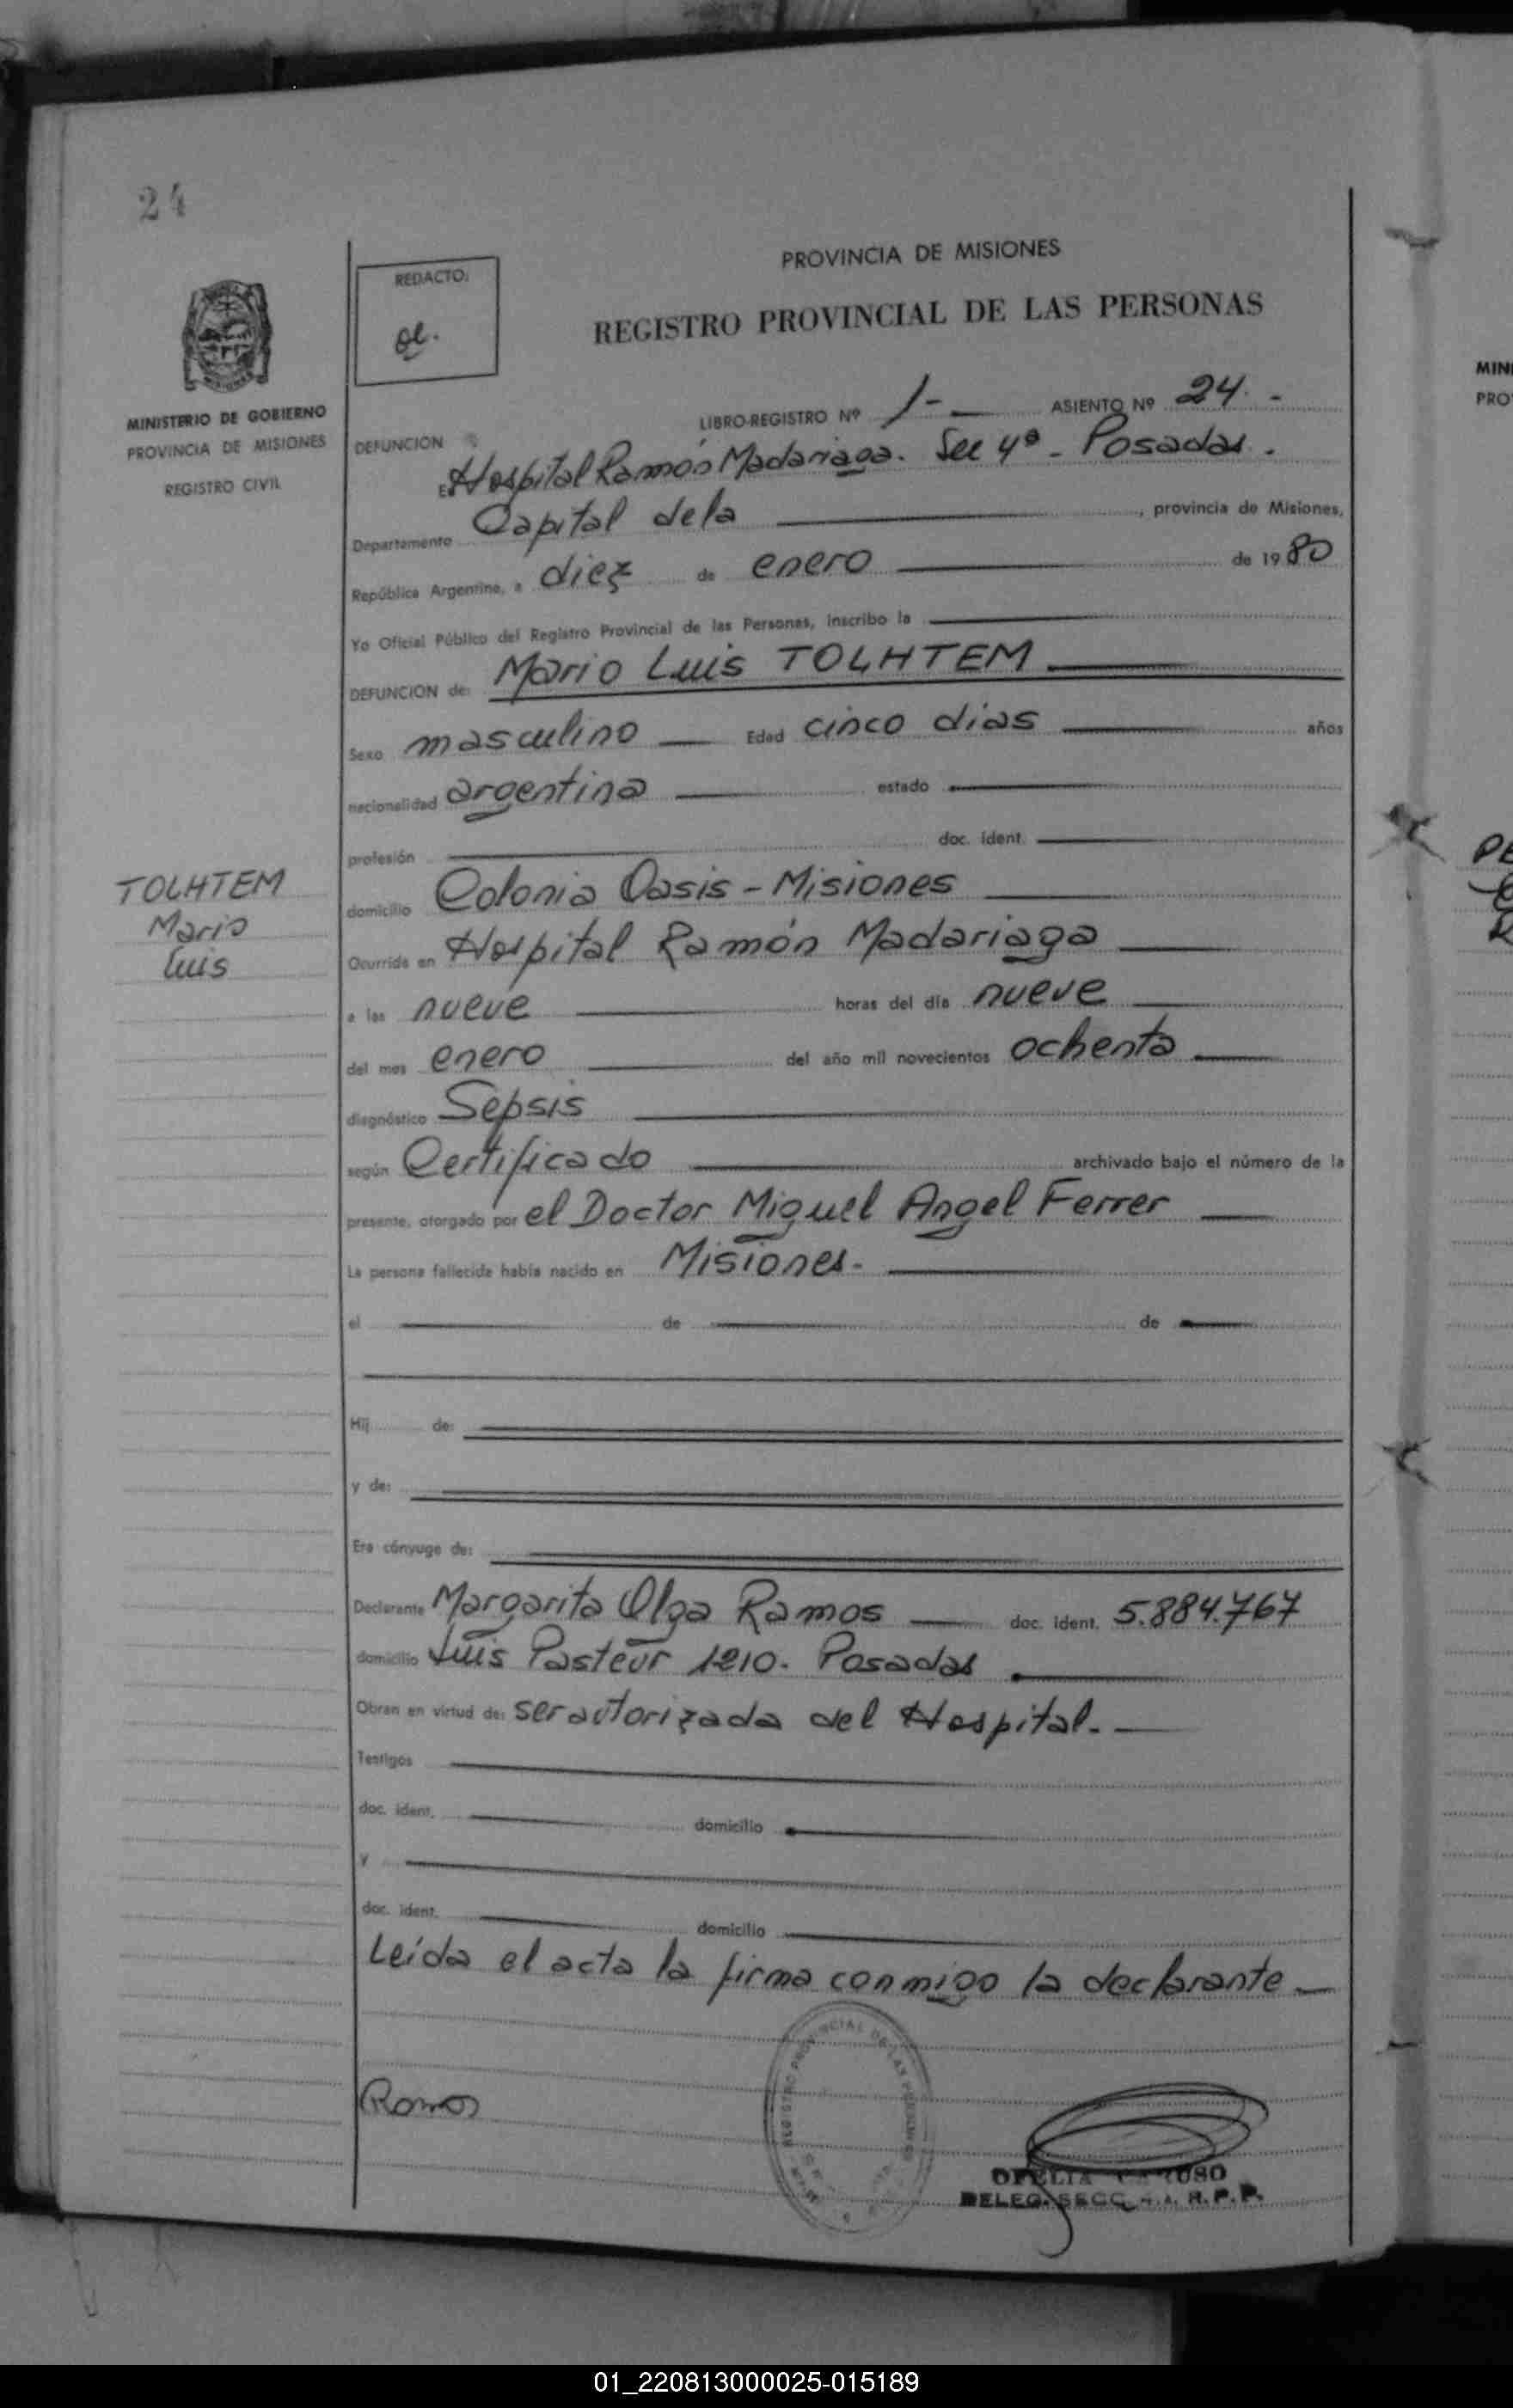 24
PROVINCIA DE MISIONES
REDACTO:
REGISTRO PROVINCIAL DE LAS PERSONAS
MINISTERIO DE GOBIERNO
PROVINCIA DE MISIONES
REGISTRO CIVIL
LIBRO-REGISTRO Nº 1- ASIENTO Nº 24.-
DEFUNCION
En Hospital Ramón Madariaga. Sec 4ª - Posadas.
Departamento Capital de la, provincia de Misiones,
República Argentina, a diez de enero de 1980
Yo Oficial Público del Registro Provincial de las Personas, inscribo la
DEFUNCION de: Mario Luis TOLHTEM
Sexo masculino Edad cinco días años
nacionalidad argentina estado
profesión doc. ident.
TOLHTEM
Mario
Luis
domicilio Colonia Oasis - Misiones
Ocurrida en Hospital Ramón Madariaga
a las nueve horas del día nueve
del mes enero del año mil novecientos ochenta
diagnóstico Sepsis
según Certificado archivado bajo el número de la
presente, otorgado por el Doctor Miguel Angel Ferrer
La persona fallecida había nacido en Misiones.-
el de de
Hij de:
y de:
Era cónyuge de:
Declarante Margarita Olga Ramos doc. ident. 5.884.767
domicilio Luis Pasteur 1210. Posadas
Obran en virtud de: ser autorizada del Hospital.-
Testigos
doc. ident. domicilio
y
doc. ident. domicilio
Leída el acta la firma conmigo la declarante
REGISTRO PROVINCIAL DE LAS PERSONAS
Ramos
OFELIA
DELEG. SECC. 4.a. R.P.P.
MINI
PRO
01_220813000025-015189